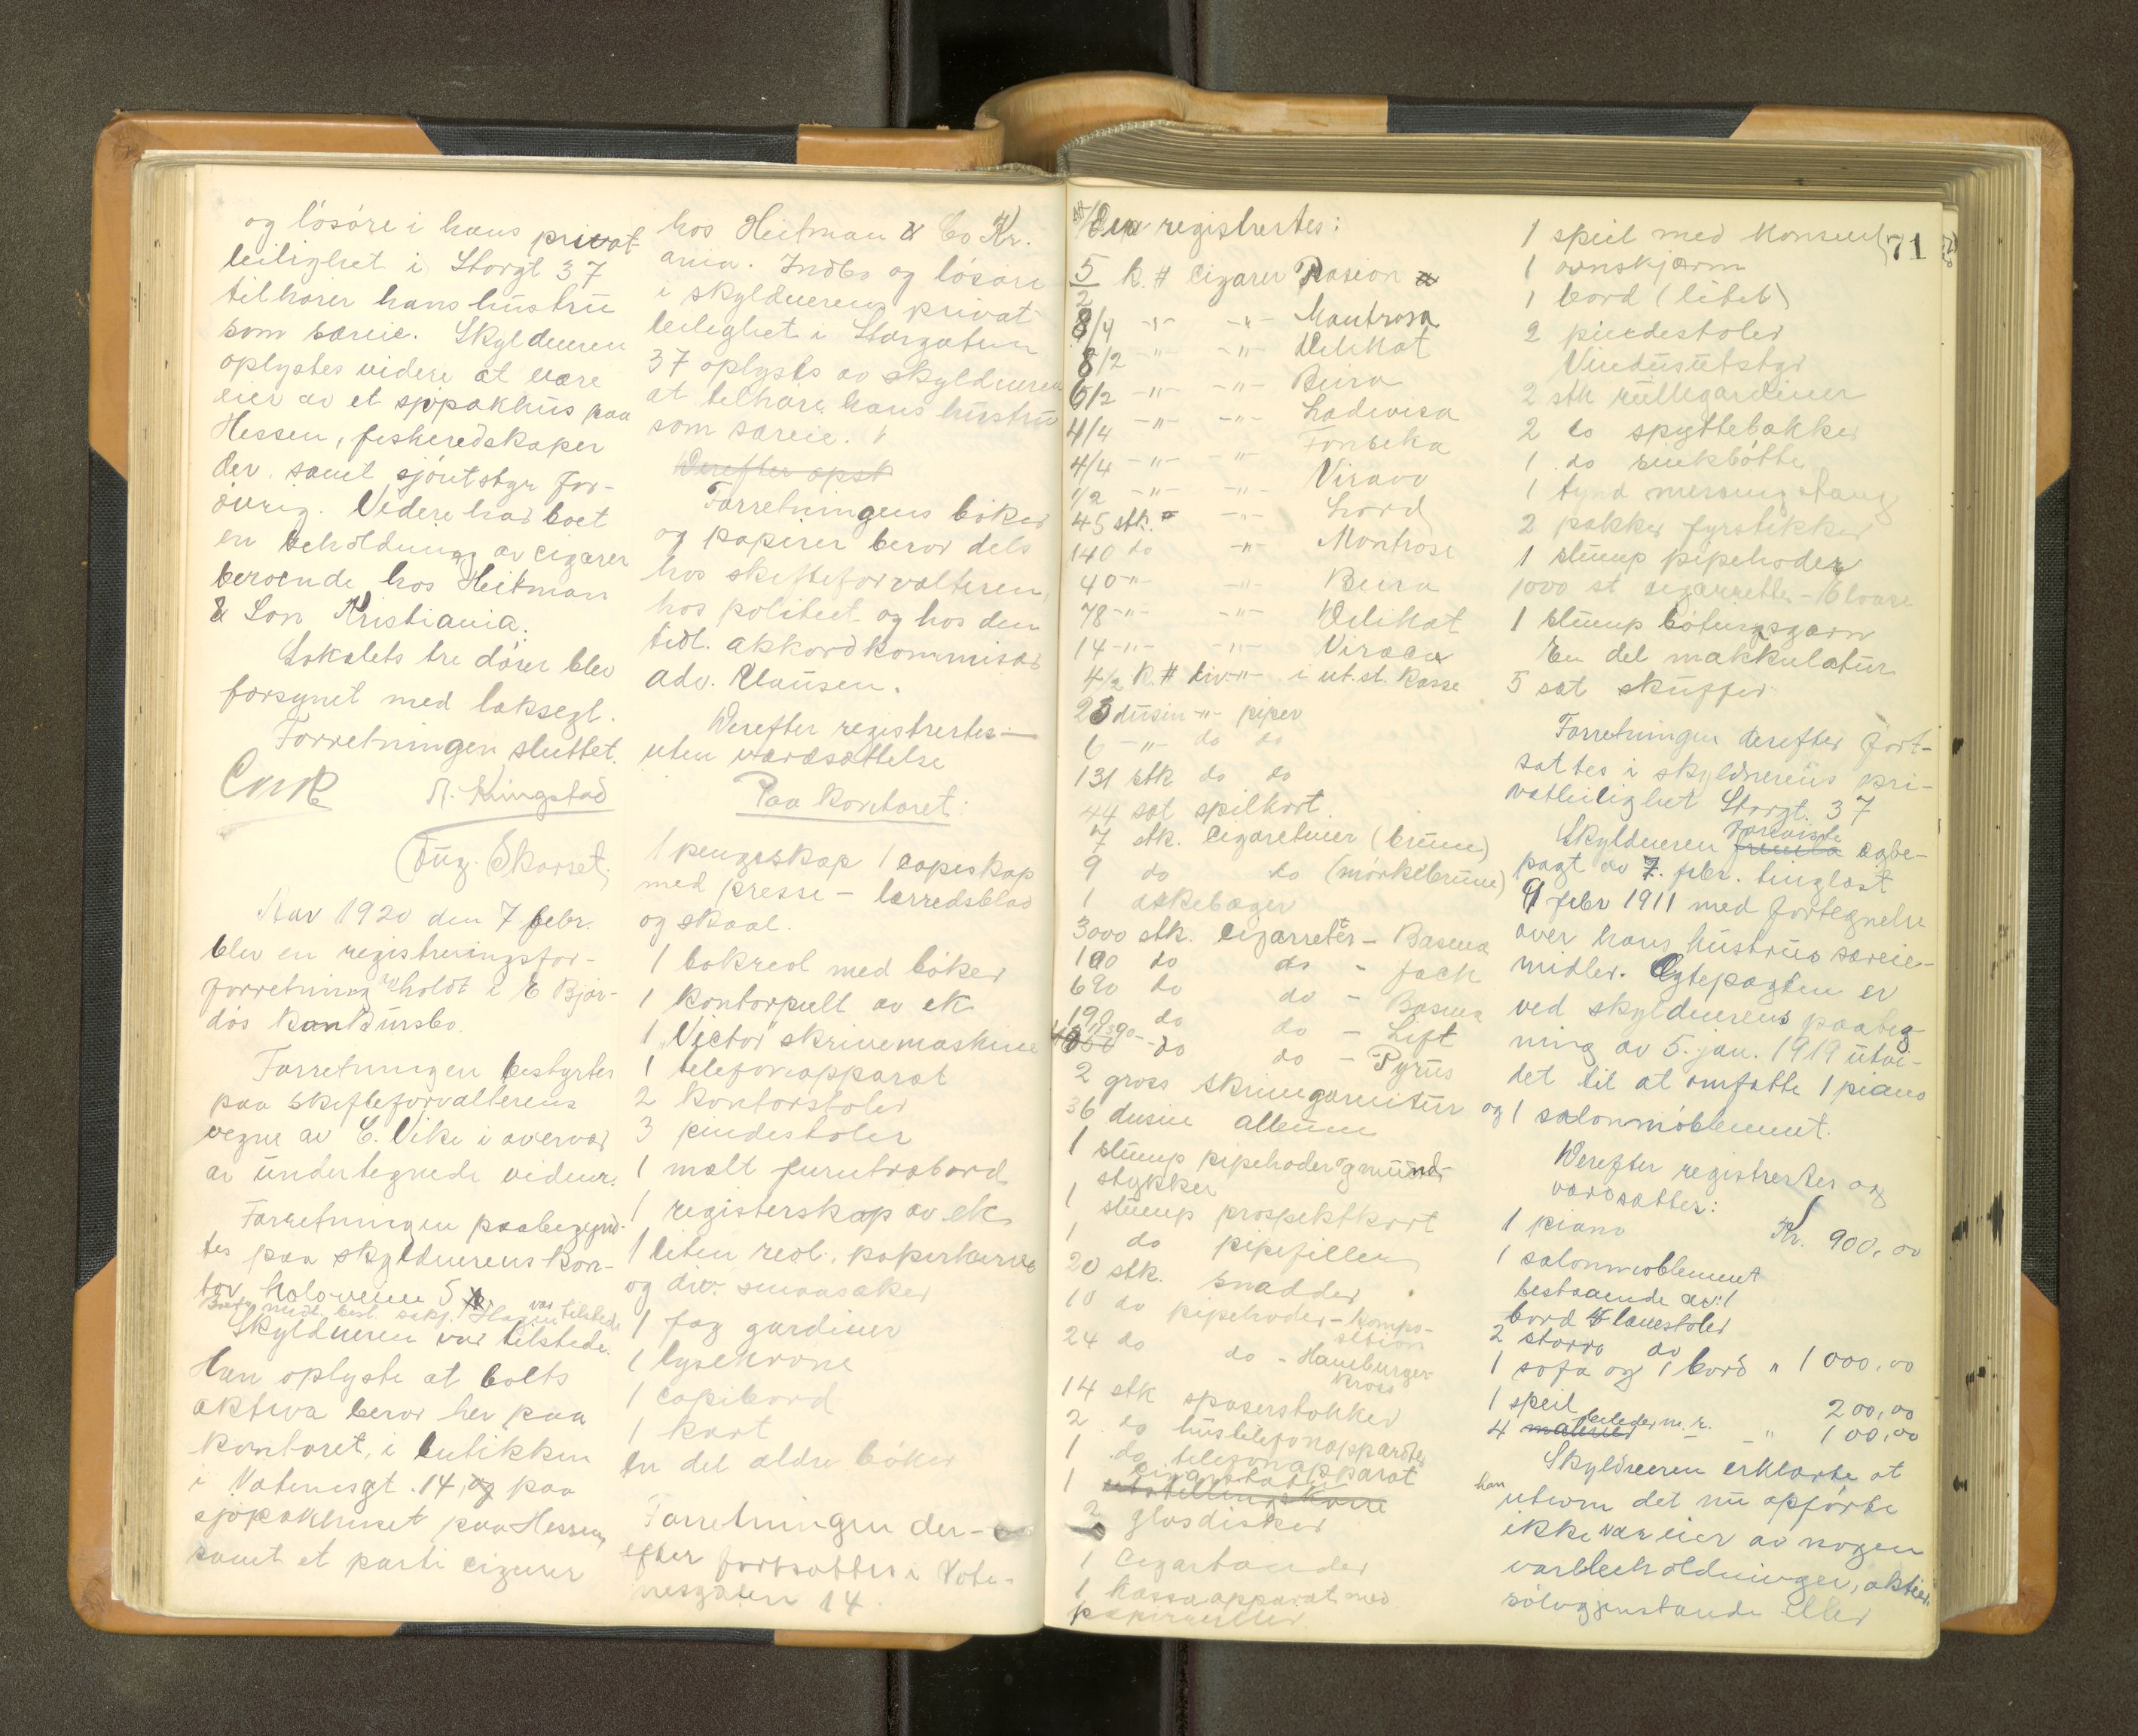 og lösöre i hans privat-
leilighet i Storgt 37
tilhører hans hustru
som særeie. Skyldneren
oplystes videre at være
eier av et sjøpakhus paa
Hessen, fiskeredskaper
der. samt sjöutstyr for-
övrig. Videre har boet
en beholdning av cigarer
beroende hos Heitman
& Søn Kristiania.
Lokalets tre dører blev
forsynet med laksegl.
Forretningen sluttet.
R. Ringstad
Aug. Skarset.
Aar 1920 den 7 febr.
blev en registreringsfor-
forretning avholdt i E Bjør-
døs konkursbo.
Forretningen bestyrtes
paa skifteforvalterens
vegne av C. Vike i overvær
av undertegnede vidner.
Forretningen paabegynd-
tes paa skyldnerens kon-
tor
Skyldneren var tilstede.
Han oplyste at boets
aktiva beror her paa
kontoret, i butikken
i Notenesgt. 14, og paa
sjøpakhuset paa Hessen,
samt et parti cigarer
hos Heitman & Co Kr.
ania. Indbo og lösöre
i skyldnerens privat-
leilighet i Storgaten
37 oplystes av skyldneren
at tilhøre hans hustru
som særeie.
Derefter opst
Forretningens böker
og papirer beror dels
hos skifteforvalteren,
hos politiet og hos den
tidl. akkordkommisær
adv. Clausen.
Derefter registrertes
uten værdsættelse
Paa kontoret:
1 pengeskap 1 copieskap
med presse - lærredsblad
og skaal.
1 bokreol med böker
1 kontorpult av ek
1 "Victor" skrivemaskine
1 telefonapparat
2 kontorstoler
3 pindestoler
1 malt furutræbord
1 registerskap av ek
1 liten reol. papirkurv
og div. smaasaker
1 fag gardiner
1 lysekrone
1 copibord
1 kart
En del ældre böker
Forretningen der-
efter fortsattes i Note-
nesgaten 14.
71
Der registrertes:
5/2 k. # cigarer Pasion
8/4 -"- -"- Montrosa
8/2 -"- -"- Delikat
6/2 -"- -"- Beira
4/4 -"- -"- Ludovica
4/4 -"- -"- Fonseka
1/2 -"- -"- Viravo
45 stk. -"- Lord
140 do -"- Montrose
40 -"- -"- Beira
78 -"- -"- Delikat
14 -"- -"- Viraca
4/2 k. # div -"- i ut. st. kasse
23 dusin -"- piper
6 -"- do do
131 stk do do
44 sæt spilkort
7 stk. cigaretuier (brune)
9 do do (mørkebrune)
1 askebæger
3000 stk. cigarretter - Basma
100 do do - Jack
690 do do - Basma
190 do do - Lift
do do - Pyrus
2 gross skrivegarnitur
36 dusin album
1 slump pipehoder og mund-
stykker
1 slump prospektkort
1 do pipefiller
20 stk. snadder
10 do pipehoder - kompo-
sition
24 do do - Hamburger-
kross
14 stk spaserstokker
2 do hustelefonapparater
1 do telefonapparat
1 utstillingskasse
2 glasdisker
1 cigartænder
1 kassaapparat med
papirruller
1 speil med konsul
1 ovnskjærm
1 bord (litet)
2 pindestoler
Vindusutstyr
2 stk rullegardiner
2 do spyttebakker
1 do sinkbøtte
1 tynd messingstang
2 pakker fyrstikker
1 slump pipehoder
1000 st cigarretter - 16 løse
1 slump bøtingsgarn
En del makkulatur
5 sæt skuffer
Forretningen derefter fort-
sattes i skyldnerens pri-
vatleilighet Storgt. 37
Skyldneren foreviste egte-
pagt av 7. febr. tinglæst
9 febr 1911 med fortegnelse
over hans hustrus særeie-
midler. Egtepagten er
ved skyldnerens paateg-
ning av 5. jan. 1919 utvi-
det til at omfatte 1 piano
og 1 salonmöblement.
Derefter registrertes og
værdsattes:
1 piano Kr. 900,00
1 salonmöblement
bestaaende av: 1
bord 4 lænestoler
2 større do
1 sofa og 1 bord " 1000,00
1 speil 200,00
4 billeder m. r. " 100,00
Skyldneren erklærte at
han utenom det nu opførte
ikke var eier av nogen
varebeholdninger, aktier,
sølvgjenstande eller